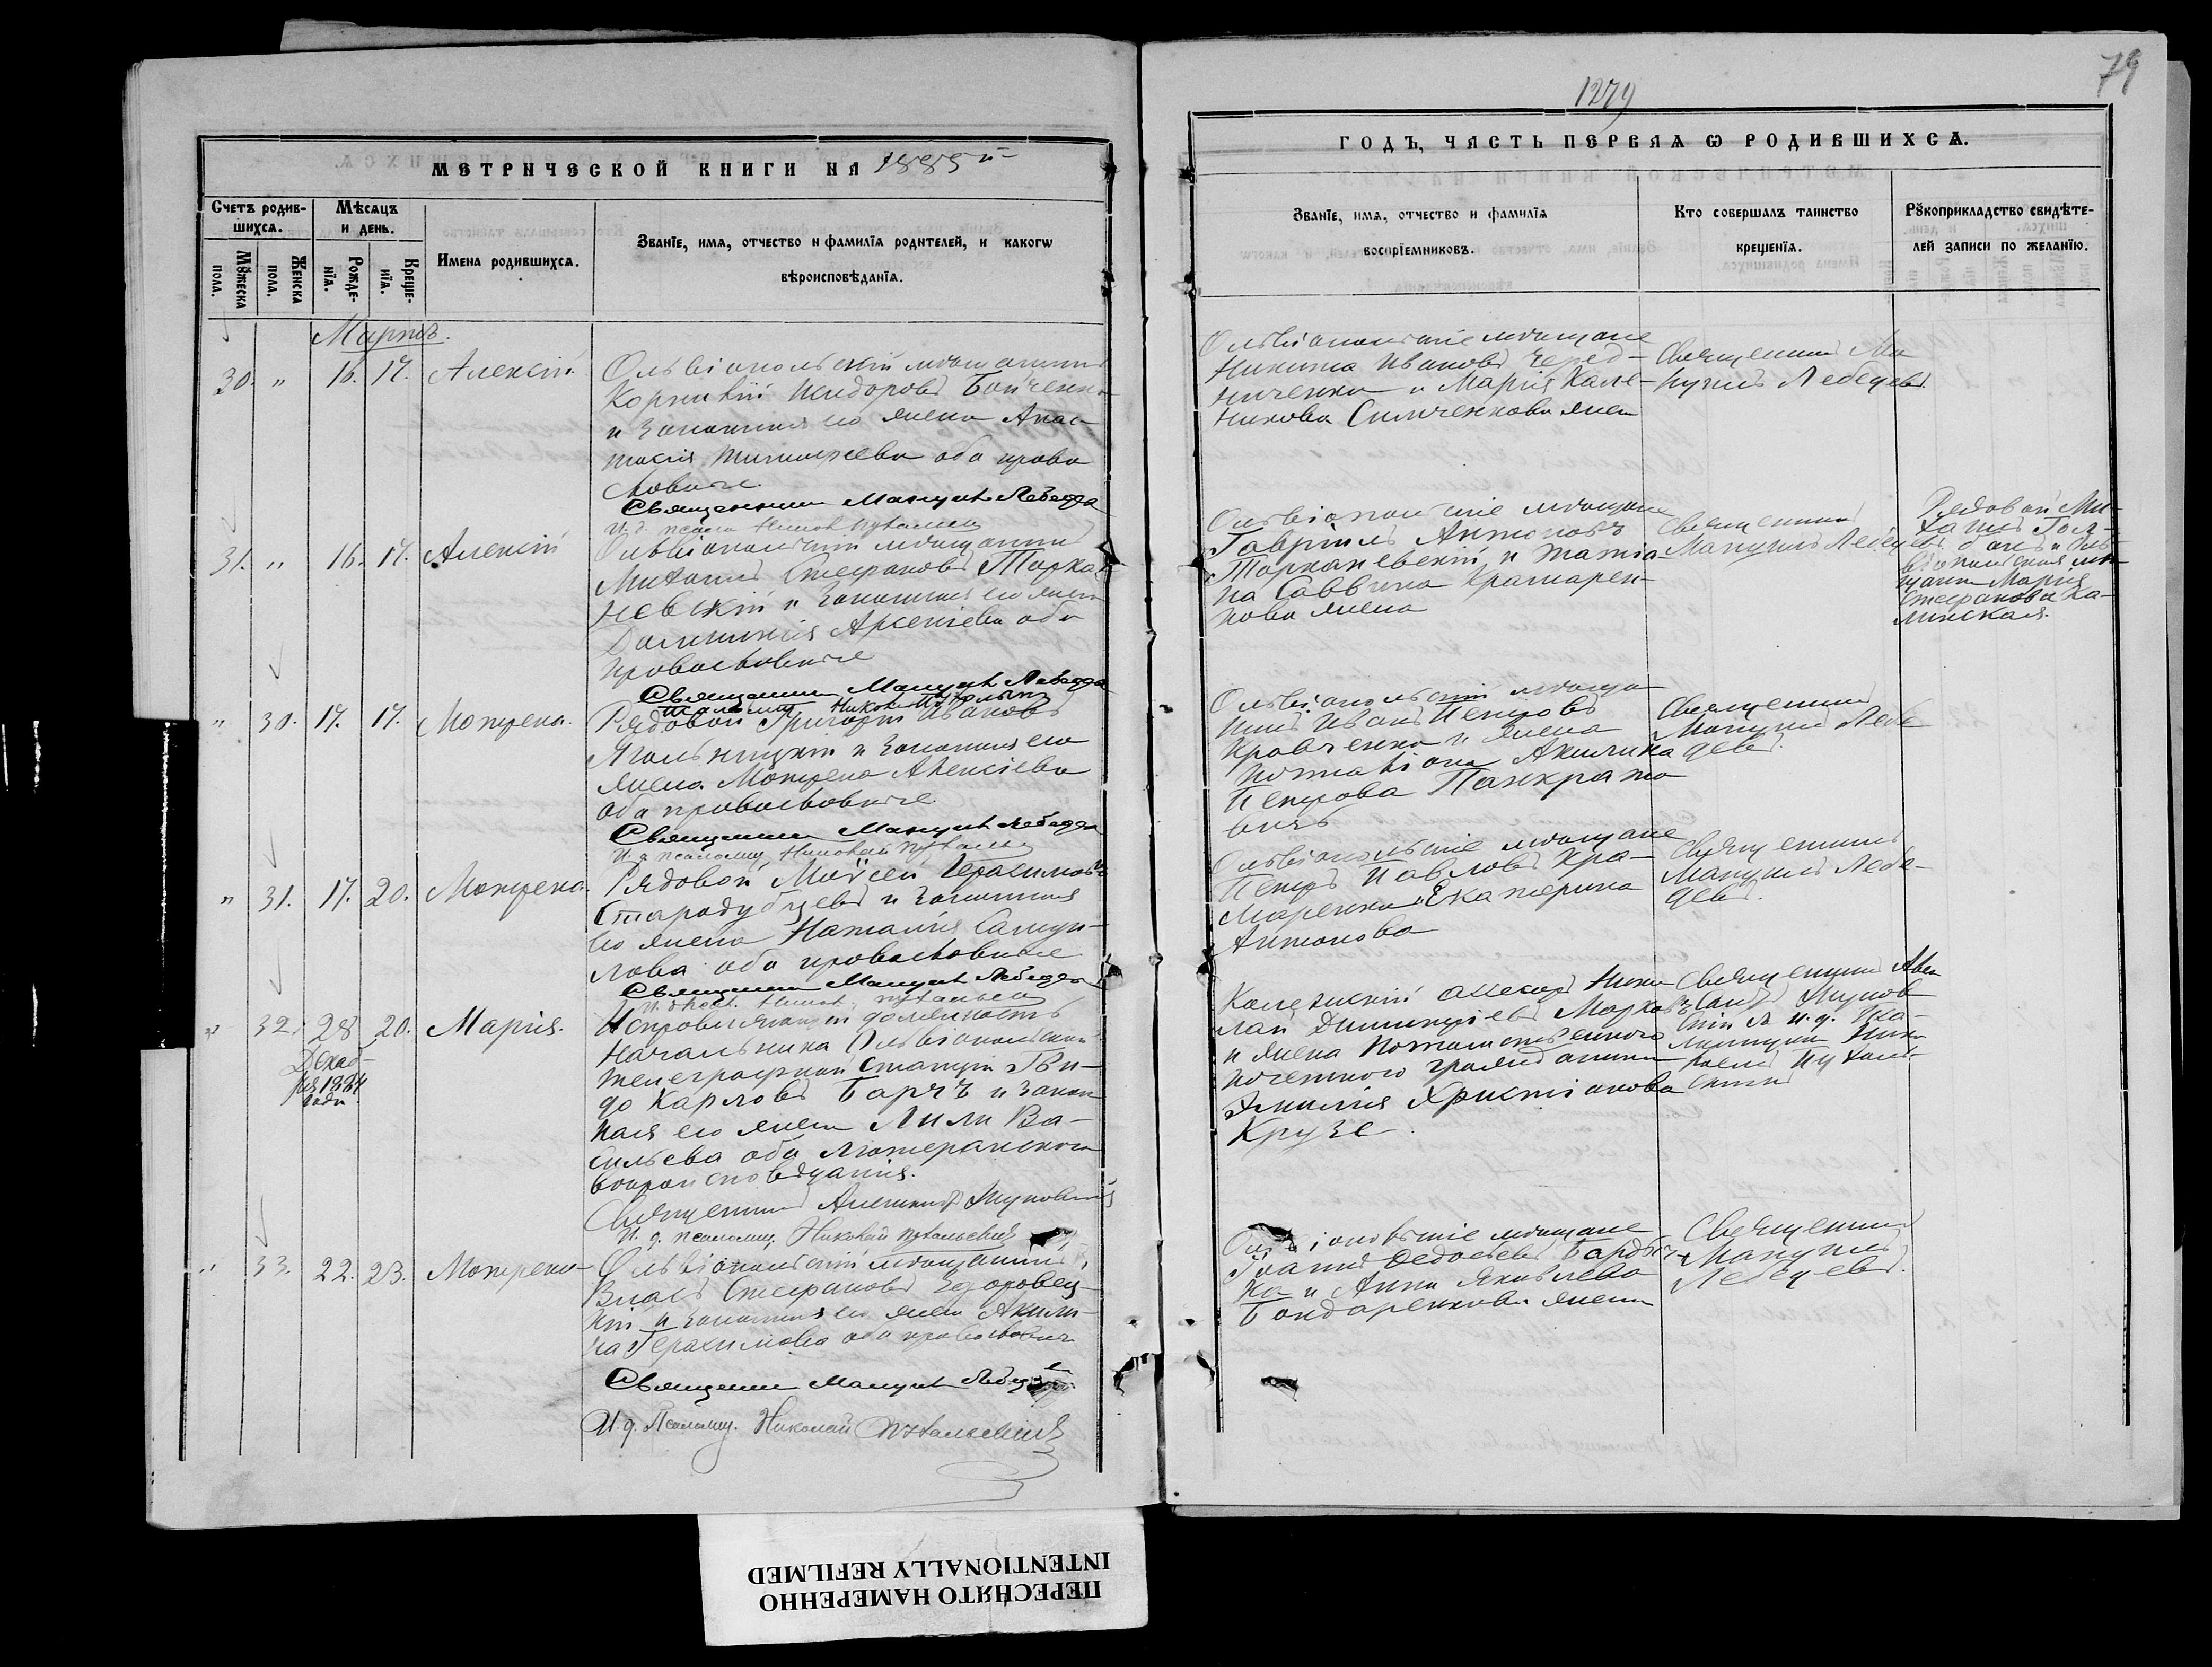 79
1279
МЕТРИЧЕСКОЙ КНИГИ НА 1885й
Счетъ родив-
шихся.
Мѣсяцъ
и день.
Имена родившихся.
Званїе, имя, отчество и фамилїя родителей, и какогѡ
вѣроисповѣданїя.
Мꙋжеска
пола.
Женска
пола.
Рожде-
нїя.
Креще-
нїя.
Мартъ.
30. " 16. 17. Алексій
Ольвіопольскій мѣщанинъ
Корнилій Исидоровъ Бойченко
и законная его жена Анас-
тасія Тимофеева оба право
славные
Священникъ Мануил Лебедев
31. " 16. 17. Алексій
Ольвіопольскій мѣщанинъ
Михаилъ Стефановъ Торка-
невскій и законная его жена
Домникія Арсеніева оба
православные
Священникъ Мануил Лебедев
" 30. 17. 17. Мотрена.
Рядовой Григорій Ивановъ
Ягольницкій и законная его
жена Мотрена Алексіева
оба православные
Священникъ Мануил Лебедев
И. д. псаломщ. Николай Пухальск
" 31. 17. 20. Мотрена.
Рядовой Моѵсей Герасимовъ
Стародубцевъ и законная
его жена Наталія Самуи-
лова оба православные
Священникъ Мануил Лебедев
" 32. 28 20. Марія.
Декаб-
ря 1884
года
Исправляющій должность
Начальника Ольвіопольской
телеграфной станціи Гви-
до Карловъ Барчъ и закон
ная его жена Лили Ва-
сильева оба Лютеранского
вѣроисповѣданія.
Священникъ Александр Жуковскій
И. д. псаломщ. Николай Пухальскій
" 33. 22. 23. Мотрена
Ольвіопольскій мѣщанинъ
Власъ Стефановъ Здоровец-
кій и законная его жена Акили-
на Герасимова оба православные
Священник Мануил Лебедев
И. д. Псаломщ. Николай Пухальскій
ГОДЪ, ЧАСТЬ ПЕРВАЯ Ѡ РОДИВШИХСЯ.
Званїе, имя, отчество и фамилїя
воспрїемниковъ.
Кто совершалъ таинство
крещенїя.
Рꙋкоприкладство свидѣте-
лей записи по желанїю.
Ольвіопольскіе мѣщане
Никита Ивановъ Черед-
ниченко и Марія Кале-
никова Симченкова жена
Священникъ Ма
нуилъ Лебедевъ
Ольвіопольскіе мѣщане
Гавріилъ Антоновъ
Торканевскій и Татіа-
на Саввина Крамарен-
кова жена
Священникъ
Мануилъ Лебедевъ
Рядовой Ми-
хаилъ
и Оль-
віопольская мѣ-
щанка Марія
Стефанова Ка-
линская.
Ольвіопольскій мѣща
нинъ Иванъ Петровъ
Кравченко и жена
Акилина
Петрова Панкрато
вичъ
Священникъ
Мануилъ Лебе
девъ.
Ольвіопольскіе мѣщане
Петръ Павловъ Кра-
маренко и Екатерина
Антонова
Священникъ
Мануилъ Лебе-
девъ.
Колежскій асесоръ Нико
лай Димитріевъ Марковъ
и жена Потомственного
почетного гражданина
Эмилія Христіанова
Крузе.
Священникъ Алек
сандръ Жуков
скій и и. д. Пса-
ломщика Нико
лай Пухаль-
скій
Ольвіопольскіе мѣщане
Іоаннъ Федосіевъ
и Анна Яковлева
Бондаренкова жена
Священникъ
Мануилъ
Лебедевъ.
ПЕРЕСНЯТО НАМЕРЕННО
INTENTIONALLY REFILMED